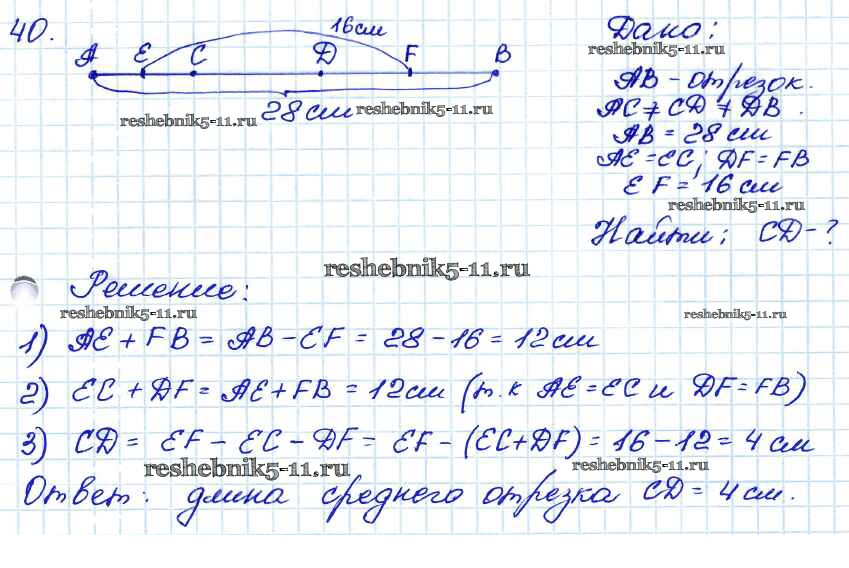 40.
16 см
A E C D F B
28 см
reshebnik5-11.ru
reshebnik5-11.ru
Дано:
reshebnik5-11.ru
AB - отрезок.
AC ≠ CD ≠ DB.
AB = 28 см
AE = EC; DF = FB
EF = 16 см
reshebnik5-11.ru
Найти: CD - ?
reshebnik5-11.ru
Решение:
reshebnik5-11.ru
reshebnik5-11.ru
1) AE + FB = AB - EF = 28 - 16 = 12 см
2) EC + DF = AE + FB = 12 см (т.к AE = EC и DF = FB)
3) CD = EF - EC - DF = EF - (EC + DF) = 16 - 12 = 4 см
reshebnik5-11.ru
reshebnik5-11.ru
Ответ: длина среднего отрезка CD = 4 см.